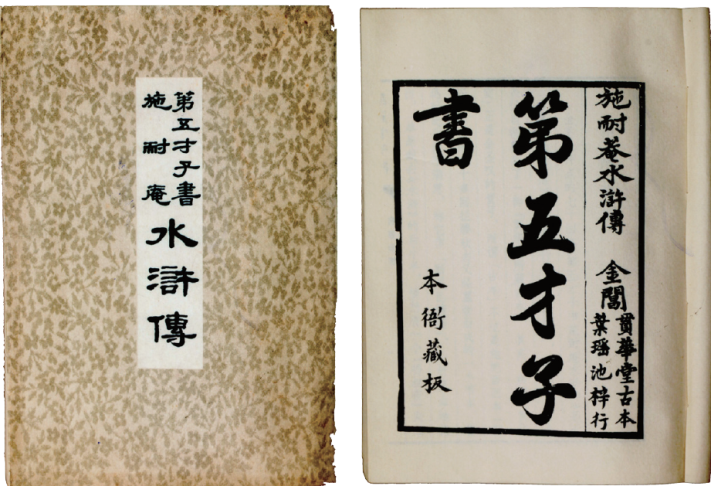 第五才子書
施耐庵
水滸傳
施耐菴水滸傳
金閶
貫華堂古本
葉瑶池梓行
第五才子
書
本衙藏板